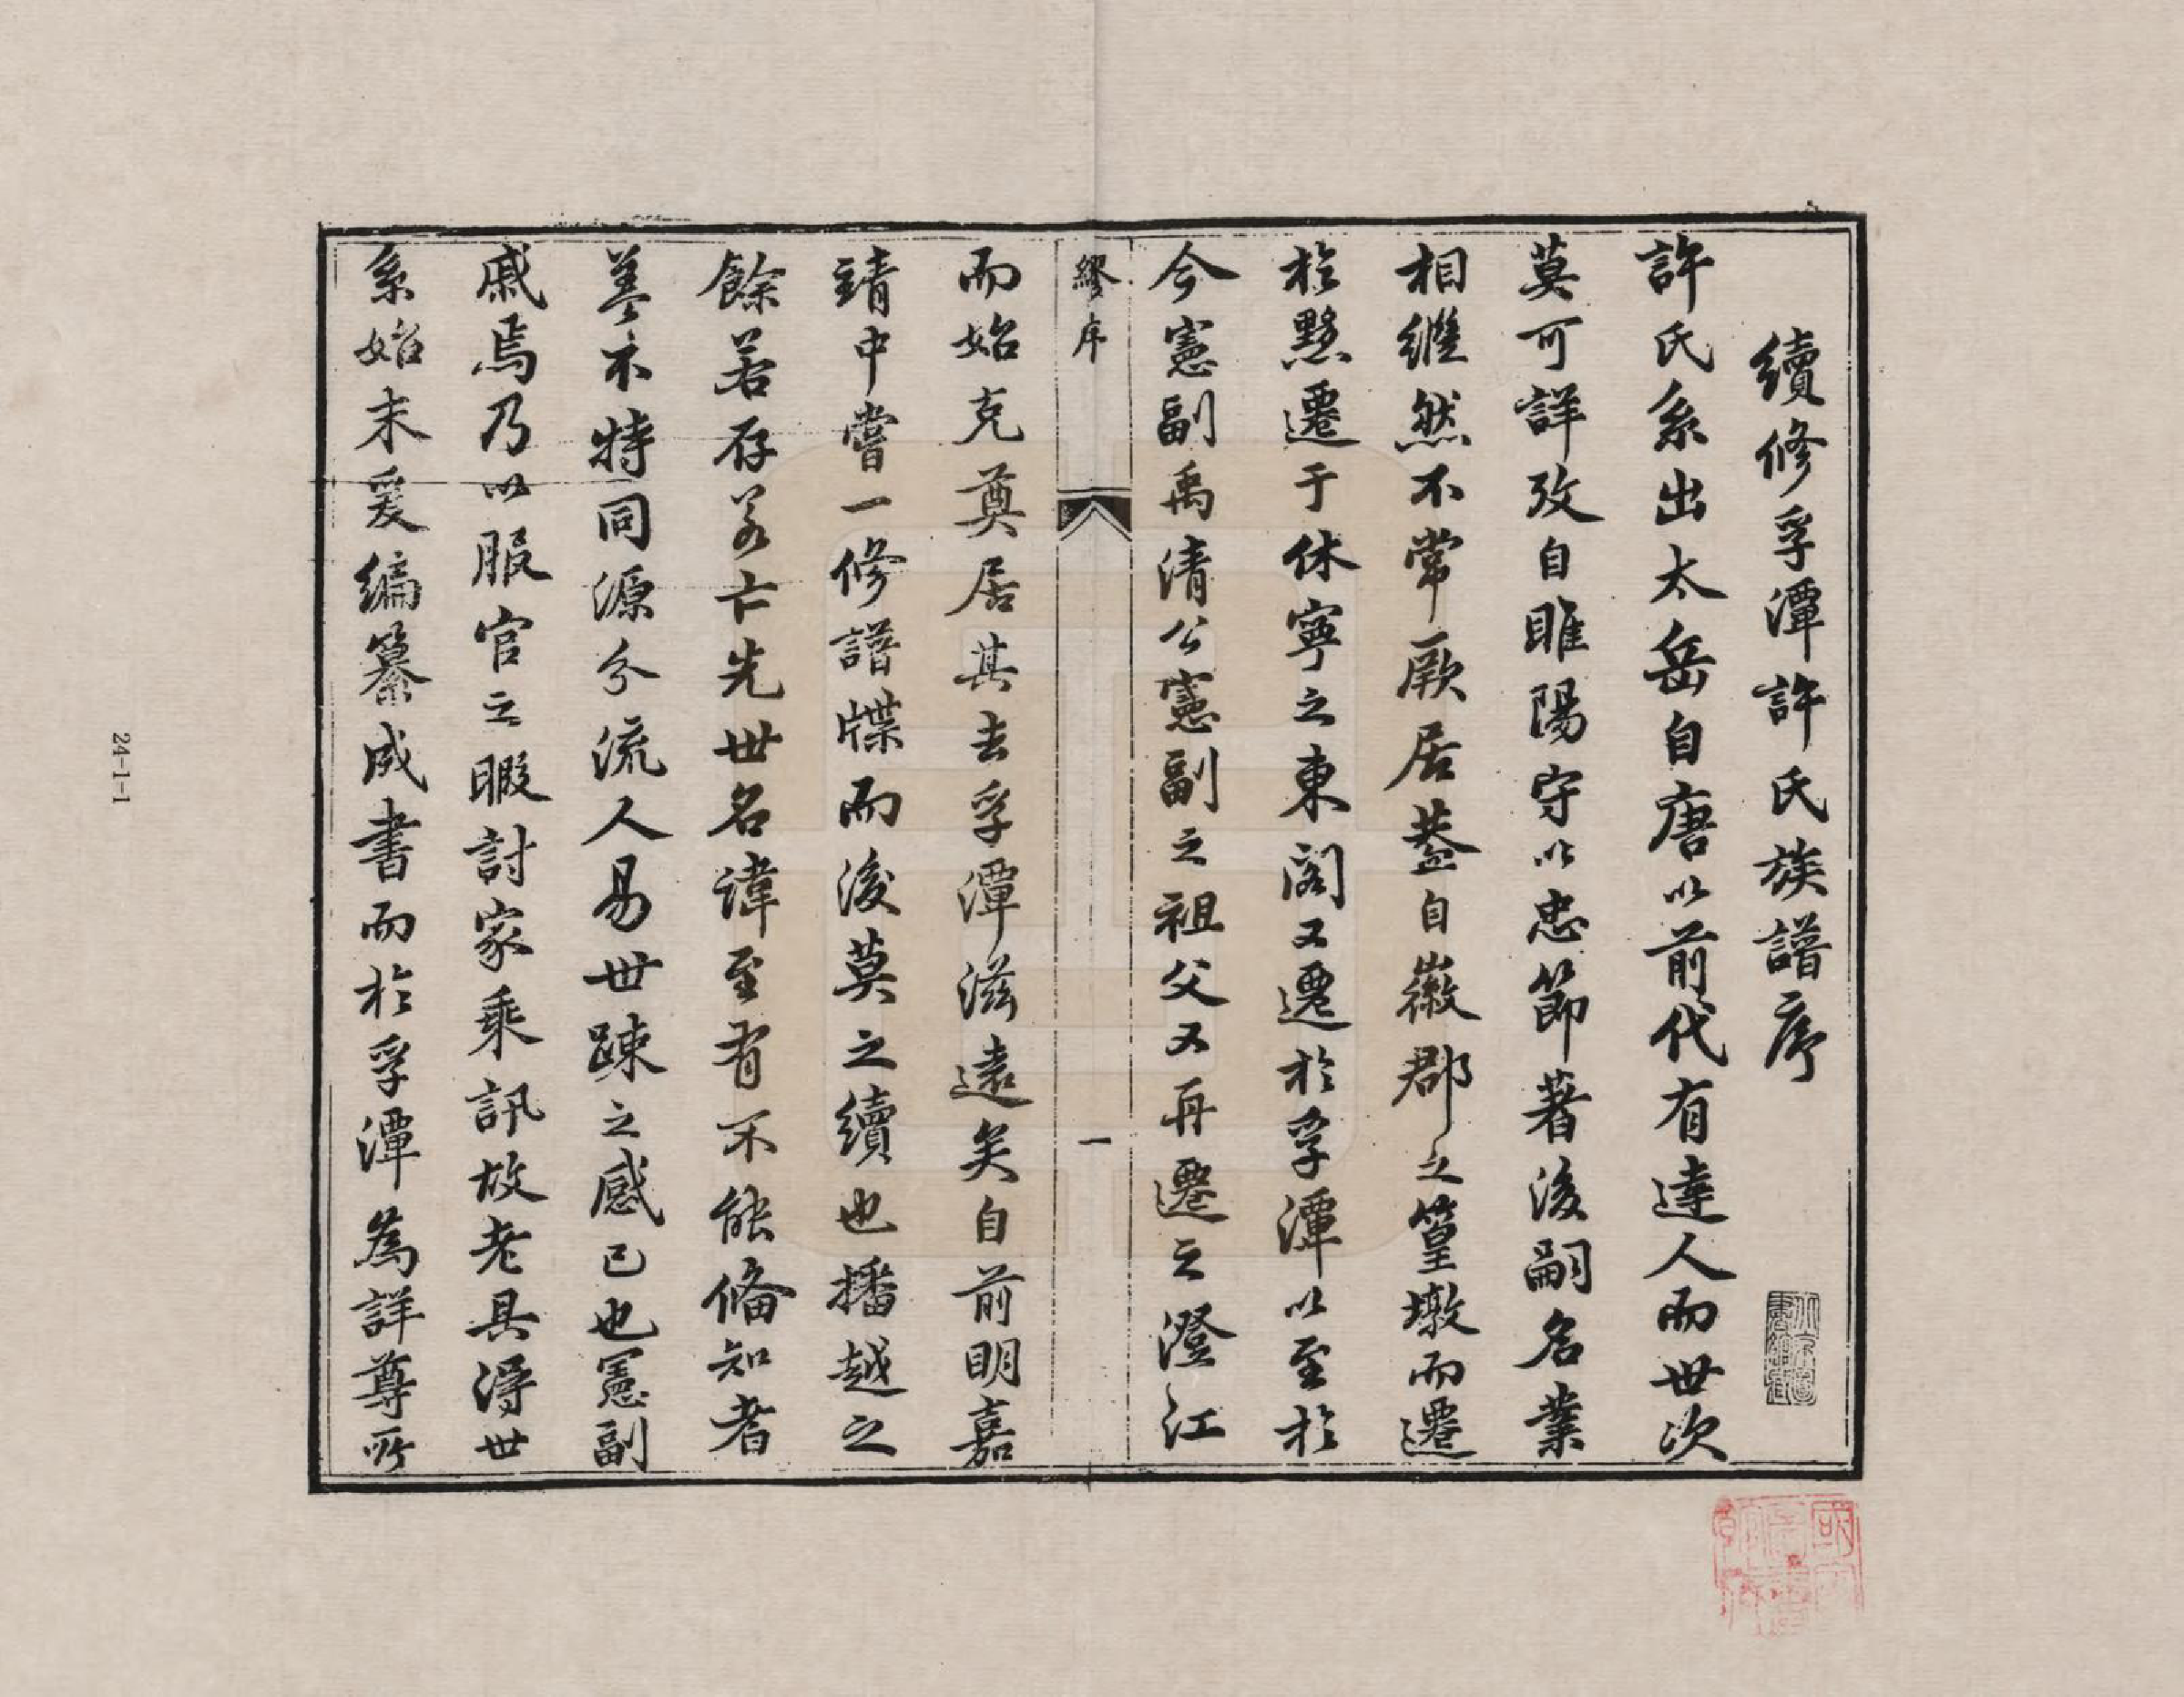 續修孚潭許氏族譜序
許氏系出太岳自唐以前代有達人而世次
莫可詳攷自睢陽守以忠節著後嗣名業
相繼然不常厥居葢自徽郡之篁墩而遷
於黟遷于休寧之東閣又遷於孚潭以至於
今憲副禹清公憲副之祖父又再遷之澄江
繆序
一
而始克奠居其去孚潭滋遠矣自前明嘉
靖中嘗一修譜牒而後莫之續也播越之
餘若存若亡先世名諱至有不能備知者
葢不特同源分流人易世踈之感已也憲副
戚焉乃以服官之暇討家乘訊故老具淂世
系始末爰編纂成書而於孚潭為詳尊所
24-1-1